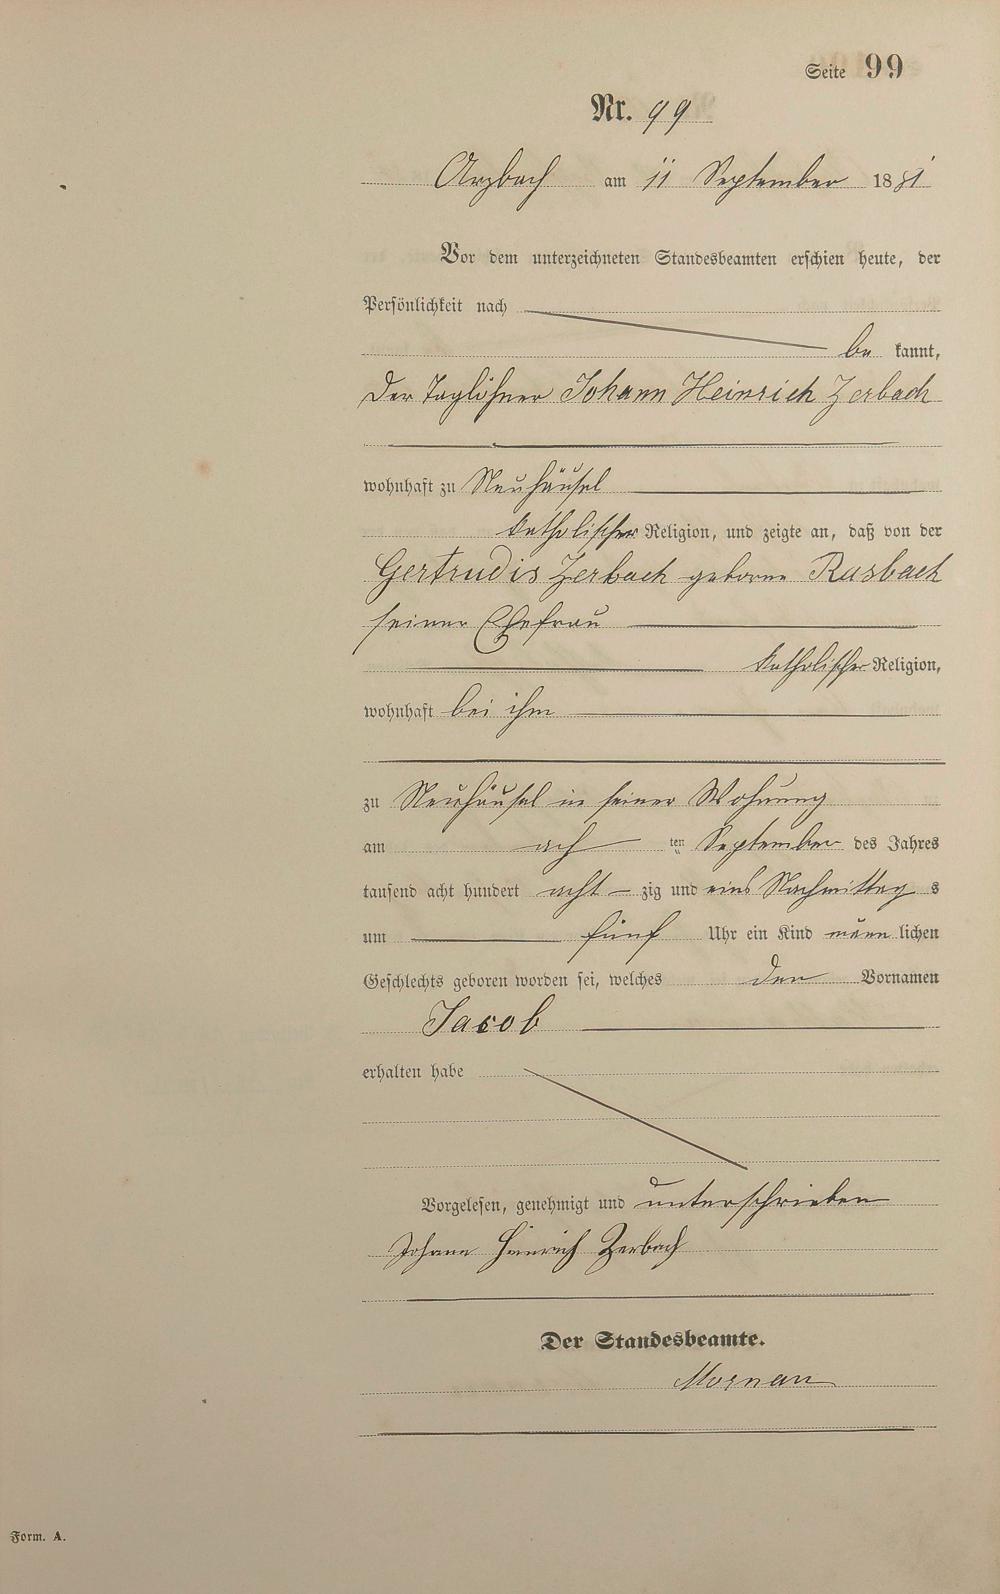 Seite 99
Nr. 99
Arzbach am 11 September 1881
Vor dem unterzeichneten Standesbeamten erschien heute, der
Persönlichkeit nach
be kannt,
der Taglöhner Johann Heinrich Zerbach
wohnhaft zu Neuhäusel
katholischer Religion, und zeigte an, daß von der
Gertrudis Zerbach geborne Rasbach
seiner Ehefrau
katholischer Religion,
wohnhaft bei ihm
zu Neuhäusel in seiner Wohnung
am ach ten September des Jahres
tausend acht hundert acht zig und eins Nachmittag s
um fünf Uhr ein Kind männ lichen
Geschlechts geboren worden sei, welches den Vornamen
Jacob
erhalten habe
Vorgelesen, genehmigt und unterschrieben
Johann Heinrich Zerbach
Der Standesbeamte.
Form. A.